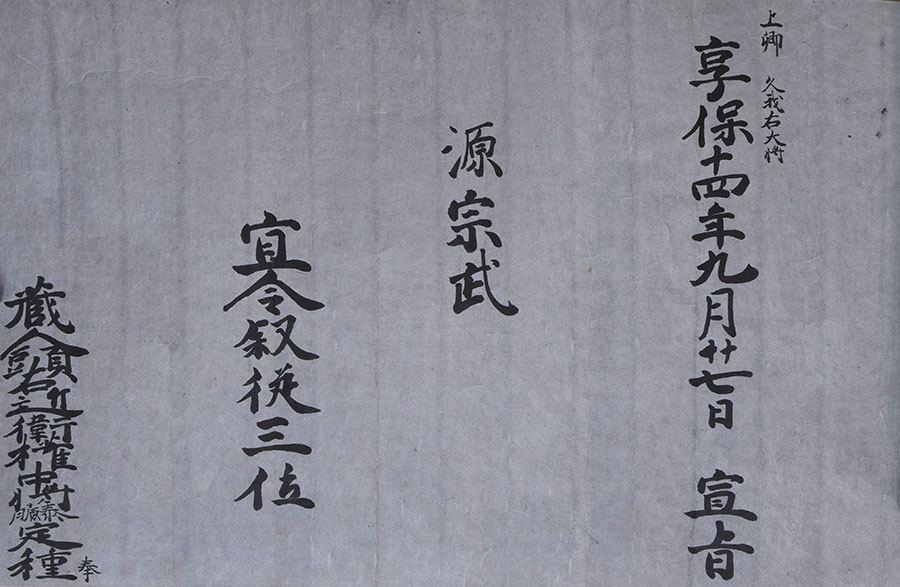 上卿 久我右大将
享保十四年九月廿七日 宣旨
源宗武
宜令叙従三位
蔵人頭右近衛権中将藤原定種 奉